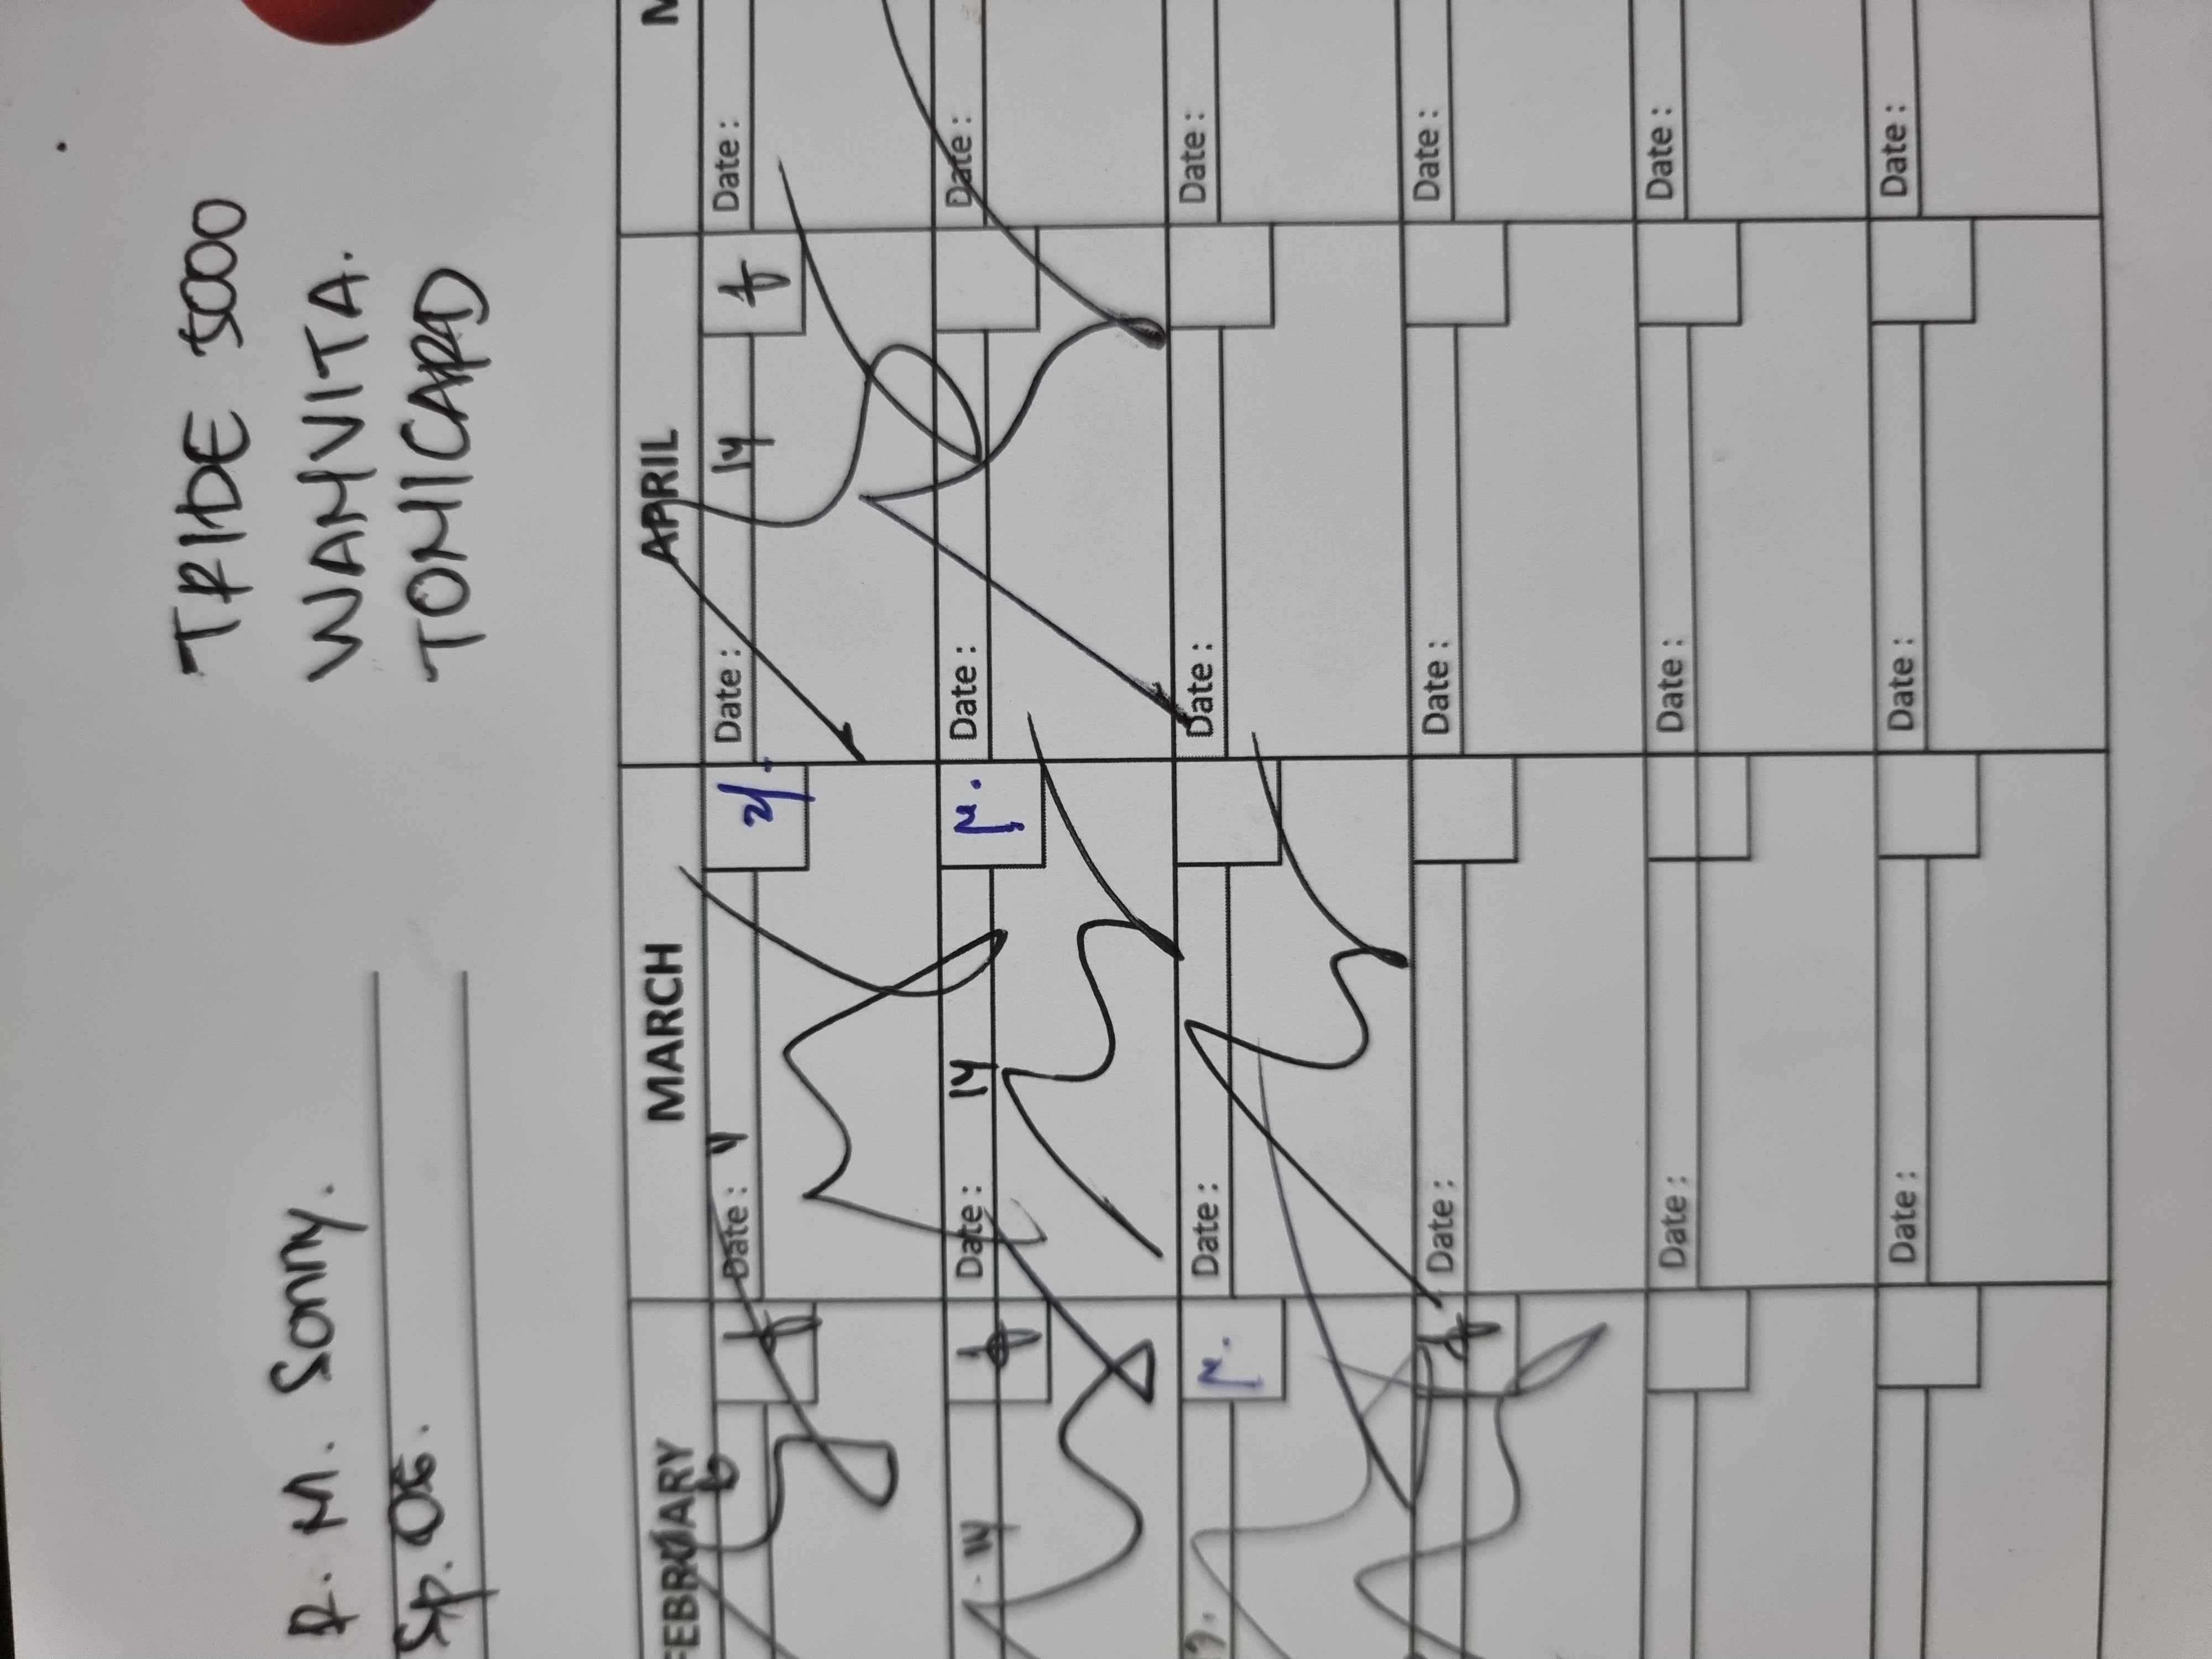 R. M. Sonny.
Sp. OG.
TRIDE 5000
WAMVITA.
TONICARD
FEBRUARY MARCH APRIL M
6 Date : 4 Date : 14 Date :
14 Date : 14 Date : Date :
9. Date : Date : Date :
Date : Date : Date :
Date : Date : Date :
Date : Date : Date :